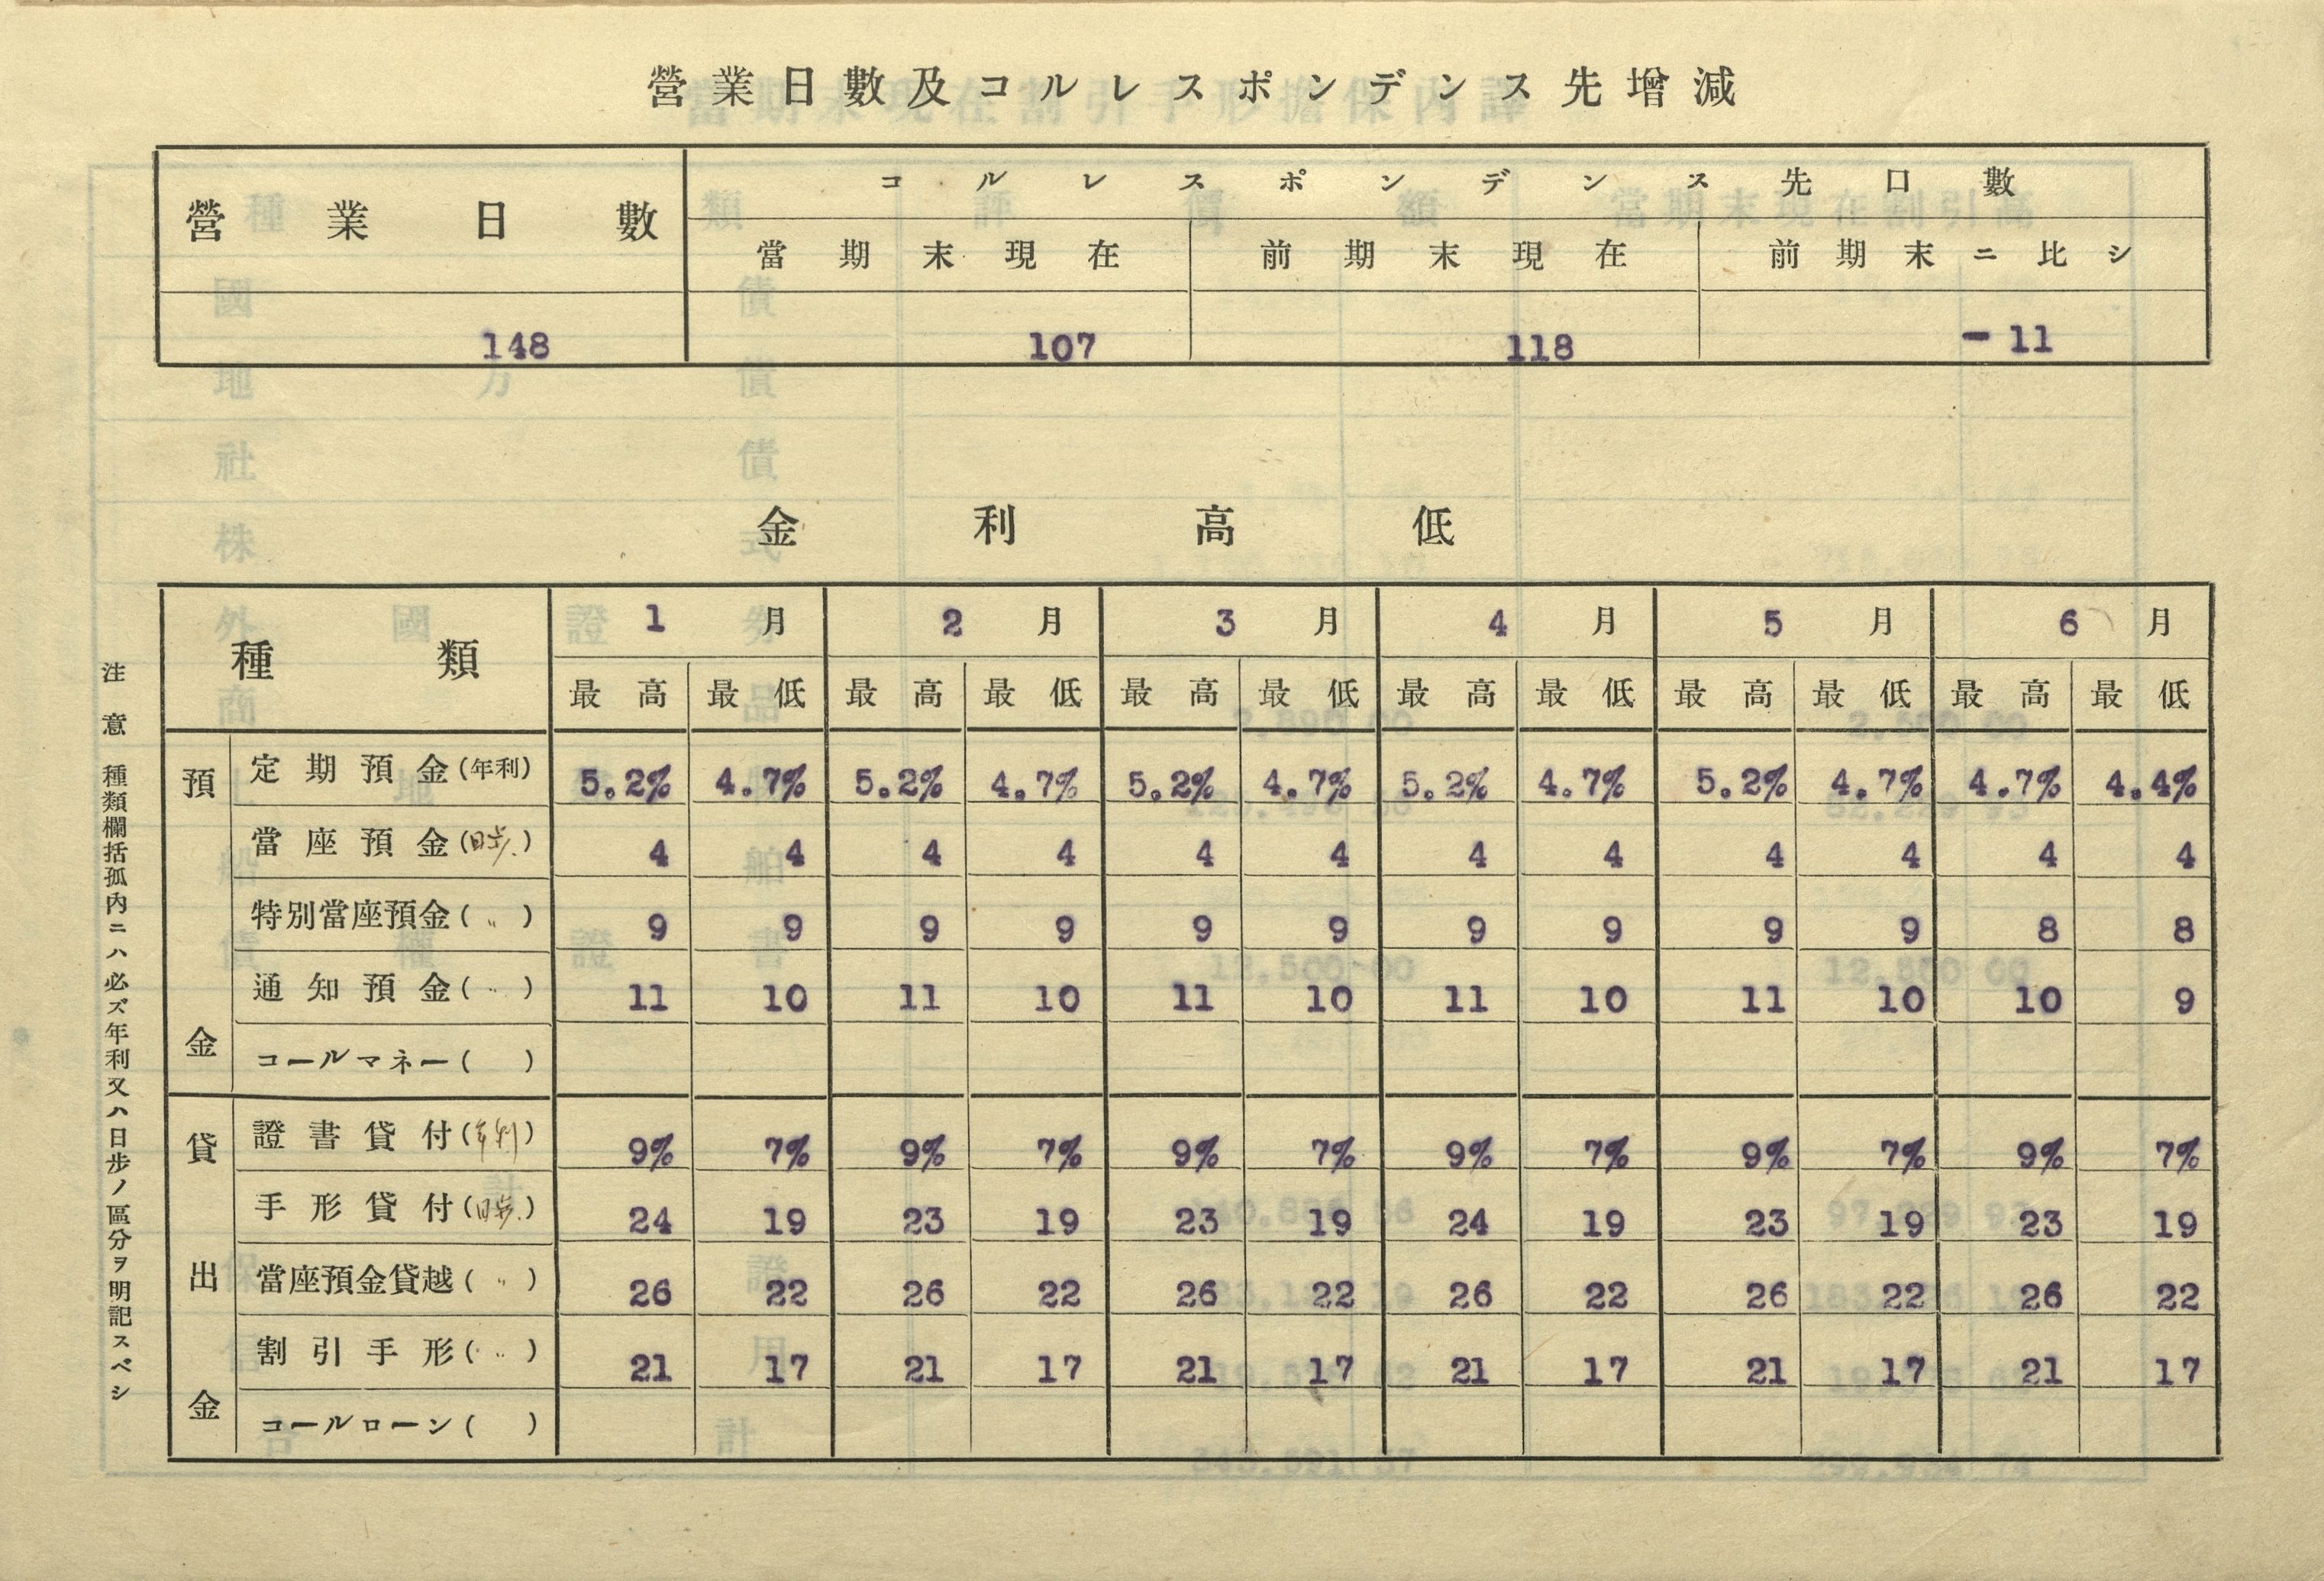 營業日數及コルレスポンデンス先增減
營業日數 コルレスポンデンス先口數
當期末現在 前期末現在 前期末ニ比シ
148 107 118 -11
金利高低
種類 1月 2月 3月 4月 5月 6月
最高 最低 最高 最低 最高 最低 最高 最低 最高 最低 最高 最低
預金
定期預金(年利) 5.2% 4.7% 5.2% 4.7% 5.2% 4.7% 5.2% 4.7% 5.2% 4.7% 4.7% 4.4%
當座預金(日歩) 4 4 4 4 4 4 4 4 4 4 4 4
特別當座預金(〃) 9 9 9 9 9 9 9 9 9 9 8 8
通知預金(〃) 11 10 11 10 11 10 11 10 11 10 10 9
コールマネー( )
貸出金
證書貸付(年利) 9% 7% 9% 7% 9% 7% 9% 7% 9% 7% 9% 7%
手形貸付(日歩) 24 19 23 19 23 19 24 19 23 19 23 19
當座預金貸越(〃) 26 22 26 22 26 22 26 22 26 22 26 22
割引手形(〃) 21 17 21 17 21 17 21 17 21 17 21 17
コールローン( )
注意 種類欄括孤内ニハ必ズ年利又ハ日步ノ區分ヲ明記スベシ